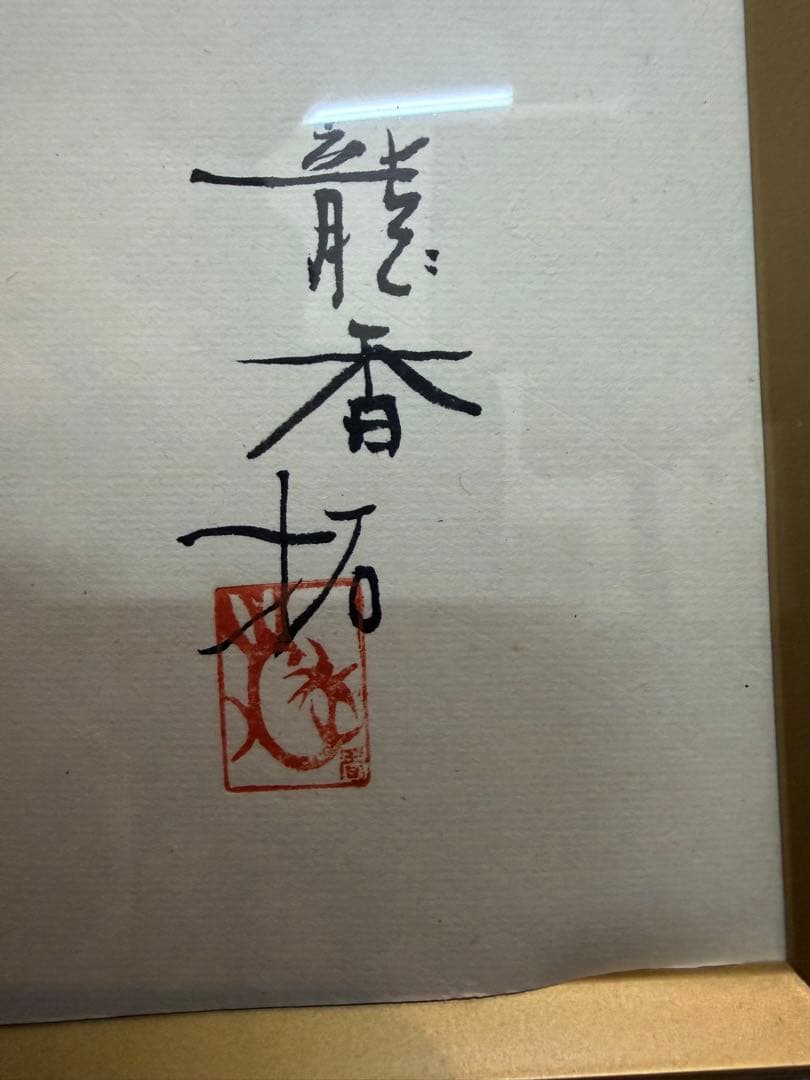 龍香拓